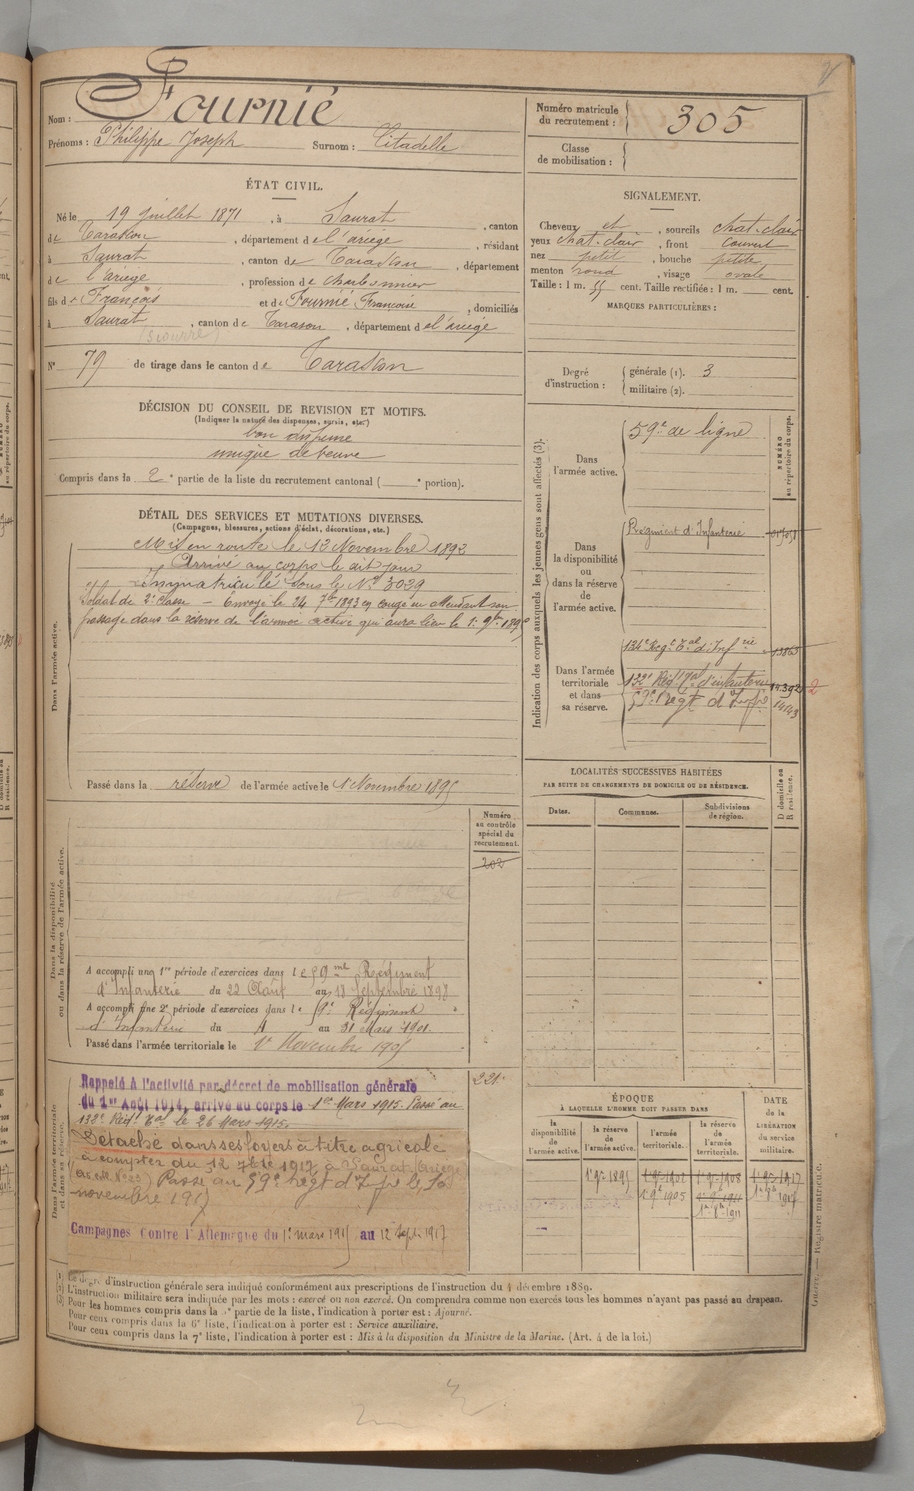 Nom : Fournié
Prénoms : Philippe Joseph Surnom : Citadelle
ÉTAT CIVIL.
Né le 19 juillet 1871, à Saurat, canton
de Tarascon, département de l'ariège, résidant
à Saurat, canton de Tarascon, département
de l'ariège, profession de charbonnier
fils de François et de Fournié Françoise, domiciliés
à Saurat, canton de Tarascon, département de l'ariège
N° 79 de tirage dans le canton de Tarascon
DÉCISION DU CONSEIL DE REVISION ET MOTIFS.
(Indiquer la nature des dispenses, sursis, etc.)
bon dispensé
unique de veuve
Compris dans la 2e partie de la liste du recrutement cantonal ( e portion).
DÉTAIL DES SERVICES ET MUTATIONS DIVERSES.
(Campagnes, blessures, actions d'éclat, décorations, etc.)
Dans l'armée active.
Mis en route le 12 Novembre 1892
Arrivé au corps le dit jour
immatriculé sous le N° 3029
Soldat de 2e classe — Envoyé le 24 7bre 1893 en congé en attendant son
passage dans la réserve de l'armée active qui aura lieu le 1er 9bre 1895
Passé dans la réserve de l'armée active le 1er Novembre 1895
Numéro
au contrôle
spécial du
recrutement.
202
Dans la disponibilité
ou dans la réserve de l'armée active.
A accompli une 1re période d'exercices dans le 59me Régiment
d'Infanterie du 22 Août au 18 Septembre 1898
A accompli une 2e période d'exercices dans le 59e Régiment
d'Infanterie du 4 au 31 Mars 1901.
Passé dans l'armée territoriale le 1er Novembre 1905
Dans l'armée territoriale
et dans sa réserve.
221
Rappelé à l'activité par décret de mobilisation générale
du 1er Août 1914, arrivé au corps le 1er Mars 1915. Passé au
132e Régt Tal le 26 Mars 1915.
Détaché dans ses foyers à titre agricole
à compter du 12 7bre 1917 à Saurat (Ariège)
Passé au 59e Régt d'Infie le 10
novembre 1917
Campagnes Contre l'Allemagne du 1er mars 1915 au 12 Sept 1917
Numéro matricule
du recrutement : 305
Classe
de mobilisation :
SIGNALEMENT.
Cheveux et, sourcils chat-clair
yeux chat-clair, front couvert
nez petit, bouche petite,
menton rond, visage ovale
Taille : 1 m. 55 cent. Taille rectifiée : 1 m. cent.
MARQUES PARTICULIÈRES :
Degré
d'instruction :
générale (1). 3
militaire (2).
Indication des corps auxquels les jeunes gens sont affectés (3).
NUMÉRO
au répertoire du corps.
Dans
l'armée active.
59e de ligne
Dans
la disponibilité
ou
dans la réserve
de
l'armée active.
Régiment d'Infanterie
Dans l'armée
territoriale
et dans
sa réserve.
134e Régt Tal d'Infrie 13863
132e Régt Tal d'infanterie 14.392 2
59e Régt d'Infie 14143
LOCALITÉS SUCCESSIVES HABITÉES
PAR SUITE DE CHANGEMENTS DE DOMICILE OU DE RÉSIDENCE.
Dates. Communes. Subdivisions
de région.
D domicile ou
R résidence.
ÉPOQUE
À LAQUELLE L'HOMME DOIT PASSER DANS
la
disponibilité
de
l'armée active.
la réserve
de
l'armée active.
l'armée
territoriale.
la réserve
de
l'armée
territoriale.
DATE
de la
LIBÉRATION
du service
militaire.
1er 9bre 1895 1er 9bre 1902 1er 9bre 1908 1er 9bre 1917
1er 8bre 1905 1er 9bre 1911 1er 8bre 1917
1er 8bre 1911
(1) Le degré d'instruction générale sera indiqué conformément aux prescriptions de l'instruction du 4 décembre 1889.
(2) L'instruction militaire sera indiquée par les mots : exercé ou non exercé. On comprendra comme non exercés tous les hommes n'ayant pas passé au drapeau.
(3) Pour les hommes compris dans la 5e partie de la liste, l'indication à porter est : Ajourné.
Pour ceux compris dans la 6e liste, l'indication à porter est : Service auxiliaire.
Pour ceux compris dans la 7e liste, l'indication à porter est : Mis à la disposition du Ministre de la Marine. (Art. 4 de la loi.)
Registre matricule.